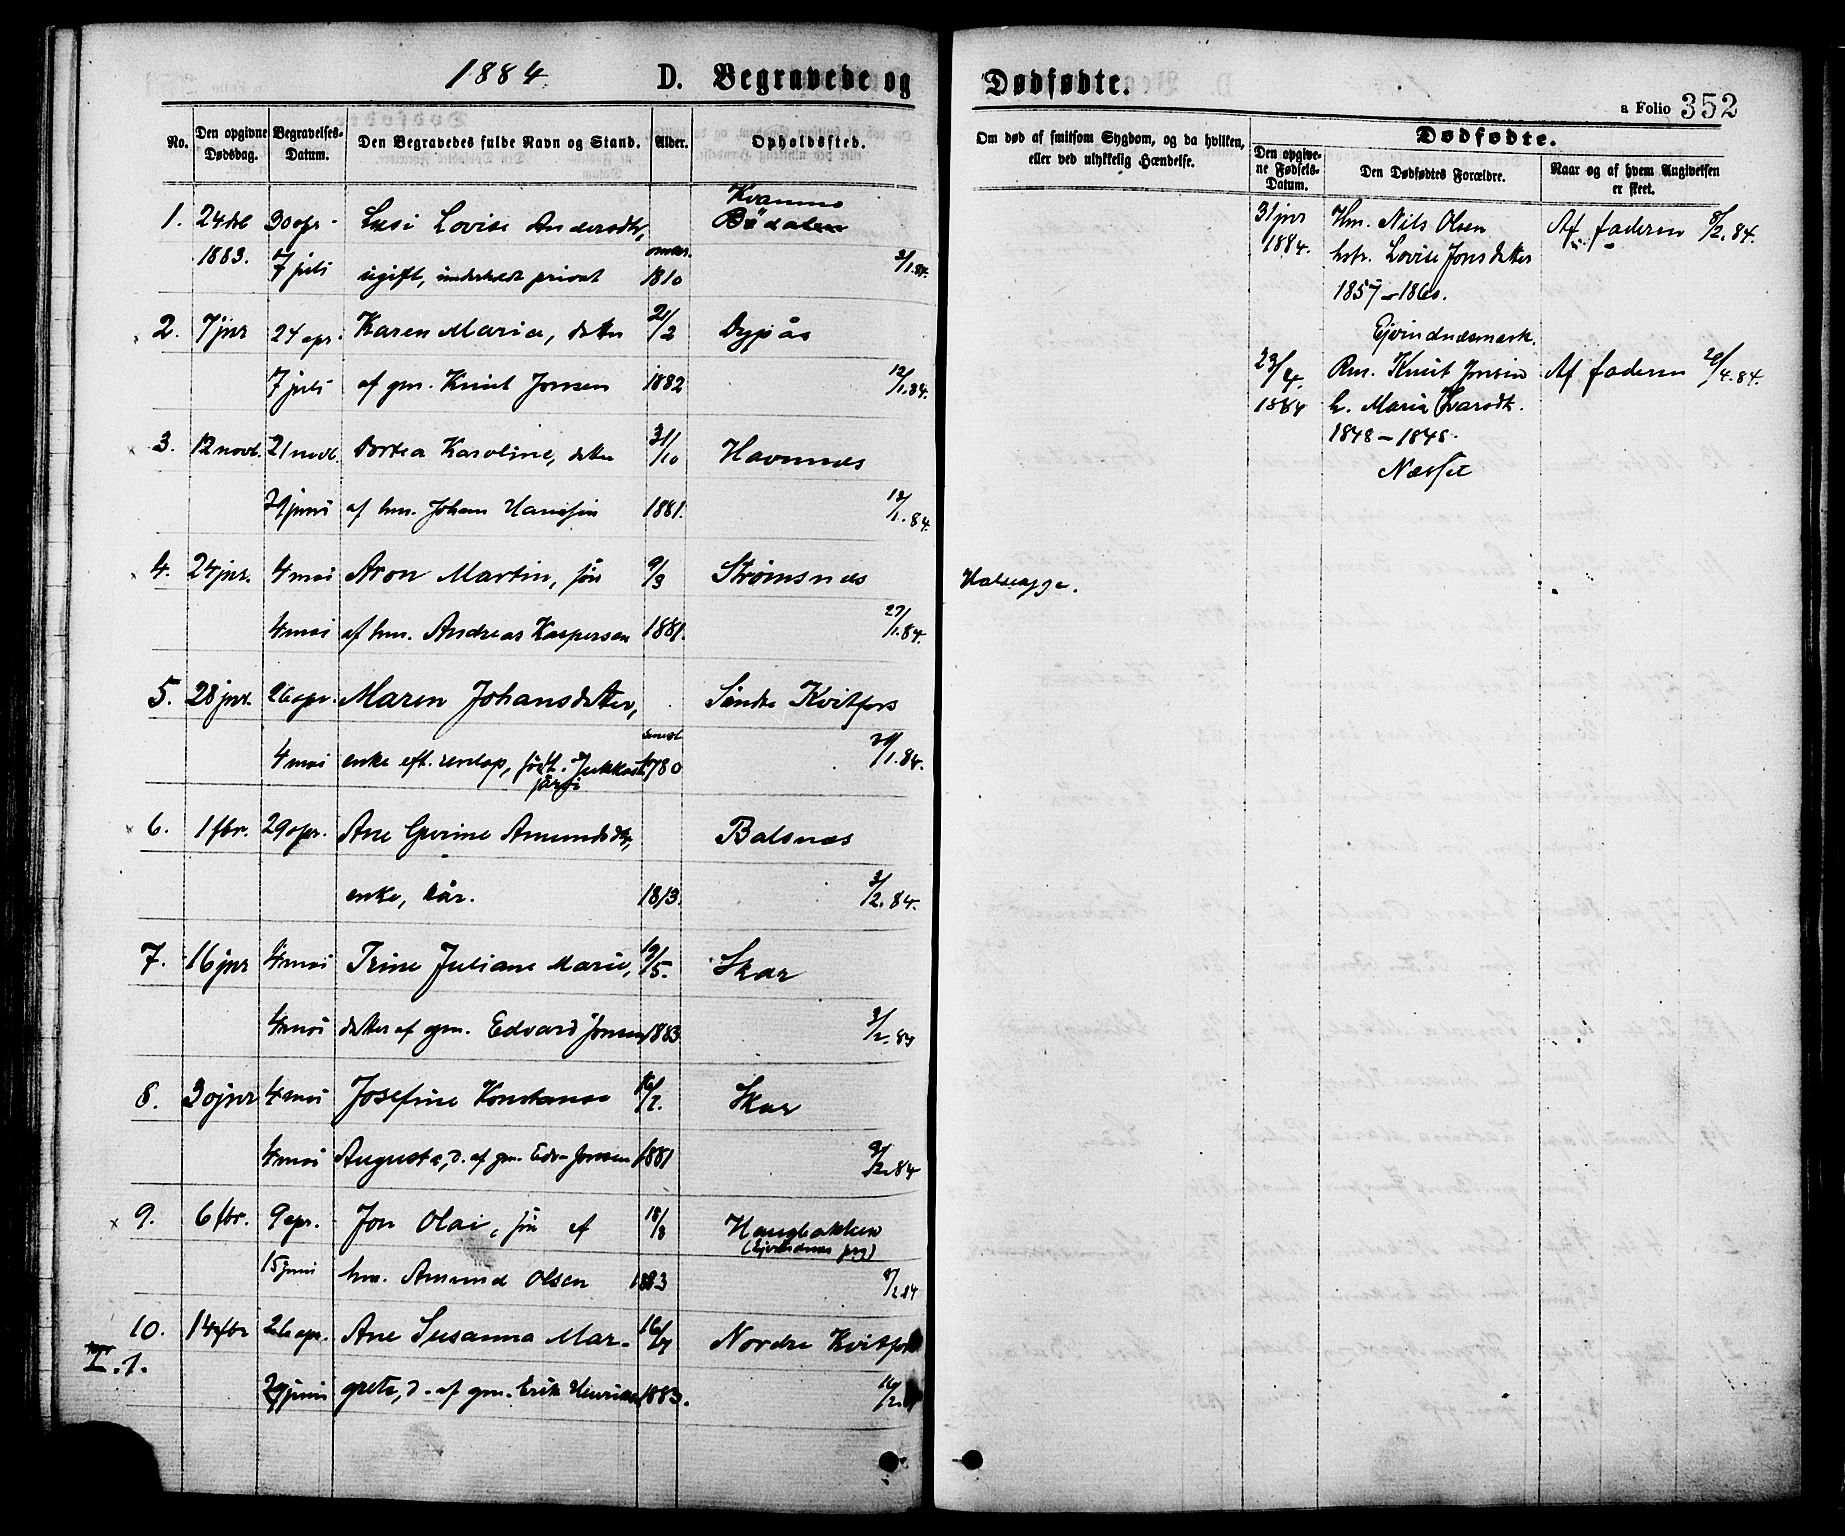 1884. D. Begravede og Dødfødte.
a Folio 352
No. Den opgivne Dødsdag. Begravelses-Datum. Den Begravedes fulde Navn og Stand. Alder. Opholdssted.
Om død af smitsom Sygdom, og da hvilken, eller ved ulykkelig Hændelse.
Dødfødte.
Den opgivne Fødsels-Datum. Den Dødfødtes Forældre. Naar og af hvem Angivelsen er skeet.
Kvannne
1. 24 30 apr Lovise Andersdtr, Bødalen
1883. 7 juli ugift, privat 1810 2/1.84.
2. 7 jnr 24 apr. Karen Maria, datter 21/2 Dypås
7 juli af gm. Knut Jonsen 1882 12/1.84.
3. 12 novb. 21 novb. Dortea Karoline, datter 31/10 Havnnes
29 juni af hm. Johan Hansen 1881. 12/1.84.
4. 24 jnr. 4 mai Aron Martin, søn 9/3 Strømsnes
4 mai af hm. Andreas Kaspersen 1881. 27/1.84.
5. 28 jnr. 26 apr. Maren Johansdatter, Søndre Kvitfors
4 mai enke eft. født. Jukkas 1780 29/1.84.
järvi
6. 1 fbr. 29 apr. Ane Gurine Amundsdtr, Balsnes
enke, kår. 1813. 3/2.84.
7. 16 jnr 4 mai Trine Juliane Marie, 19/5. Skar
4 mai datter af gm. Edvard Jonsen 1883 3/2.84
8. 30 jnr 4 mai Josefine Konstanse Skar
4 mai Augusta, d. af gm. Edv. Jonsen 1881 3/2.84
9. 6 fbr. 9 apr. Jon Olai, søn af 18/8 Haugbakken
15 juni hm. Amund Olsen 1883 8/2 84
10. 14 fbr 26 apr. Ane Susanna Mar- 16/7 Nordre Kvitfors
I.1.
29 juni grete, d. af gm. Erik Henriksen 1883. 16/2
Halssyge.
31 jnr Hm. Nils Olsen Af faderen 8/2.84.
1884. hstr. Lovise Jonsdatter
1857 – 1860.
Ejvindnesmark.
23/4. Rm. Knut Jonsen Af faderen 29/4.84.
1884 h. Maria Ivarsdtr.
1848 – 1848.
Næsset